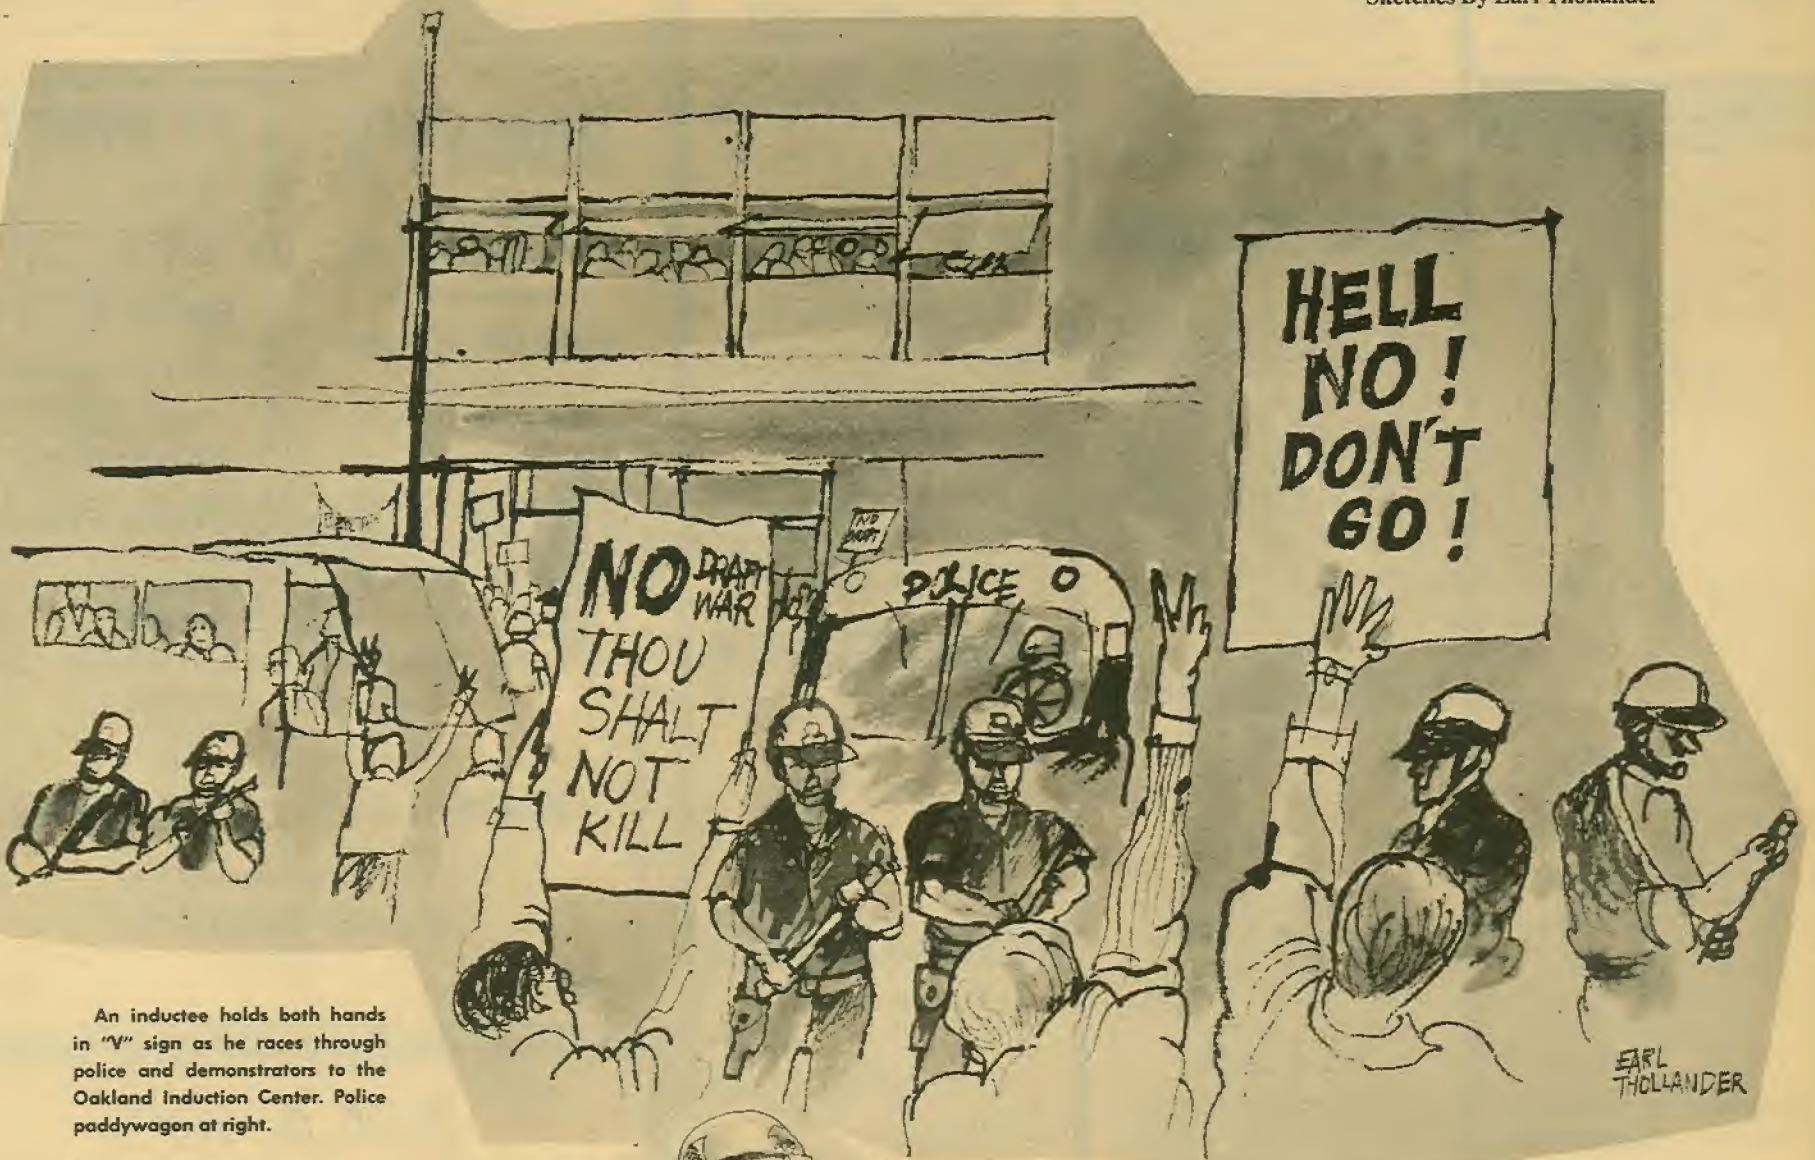 Sketches By Earl Thollander
HELL
NO!
DON'T
GO!
NO DRAFT
WAR
THOU
SHALT
NOT
KILL
NO
DRAFT
POLICE
An inductee holds both hands
in "V" sign as he races through
police and demonstrators to the
Oakland Induction Center. Police
paddywagon at right.
EARL
THOLLANDER